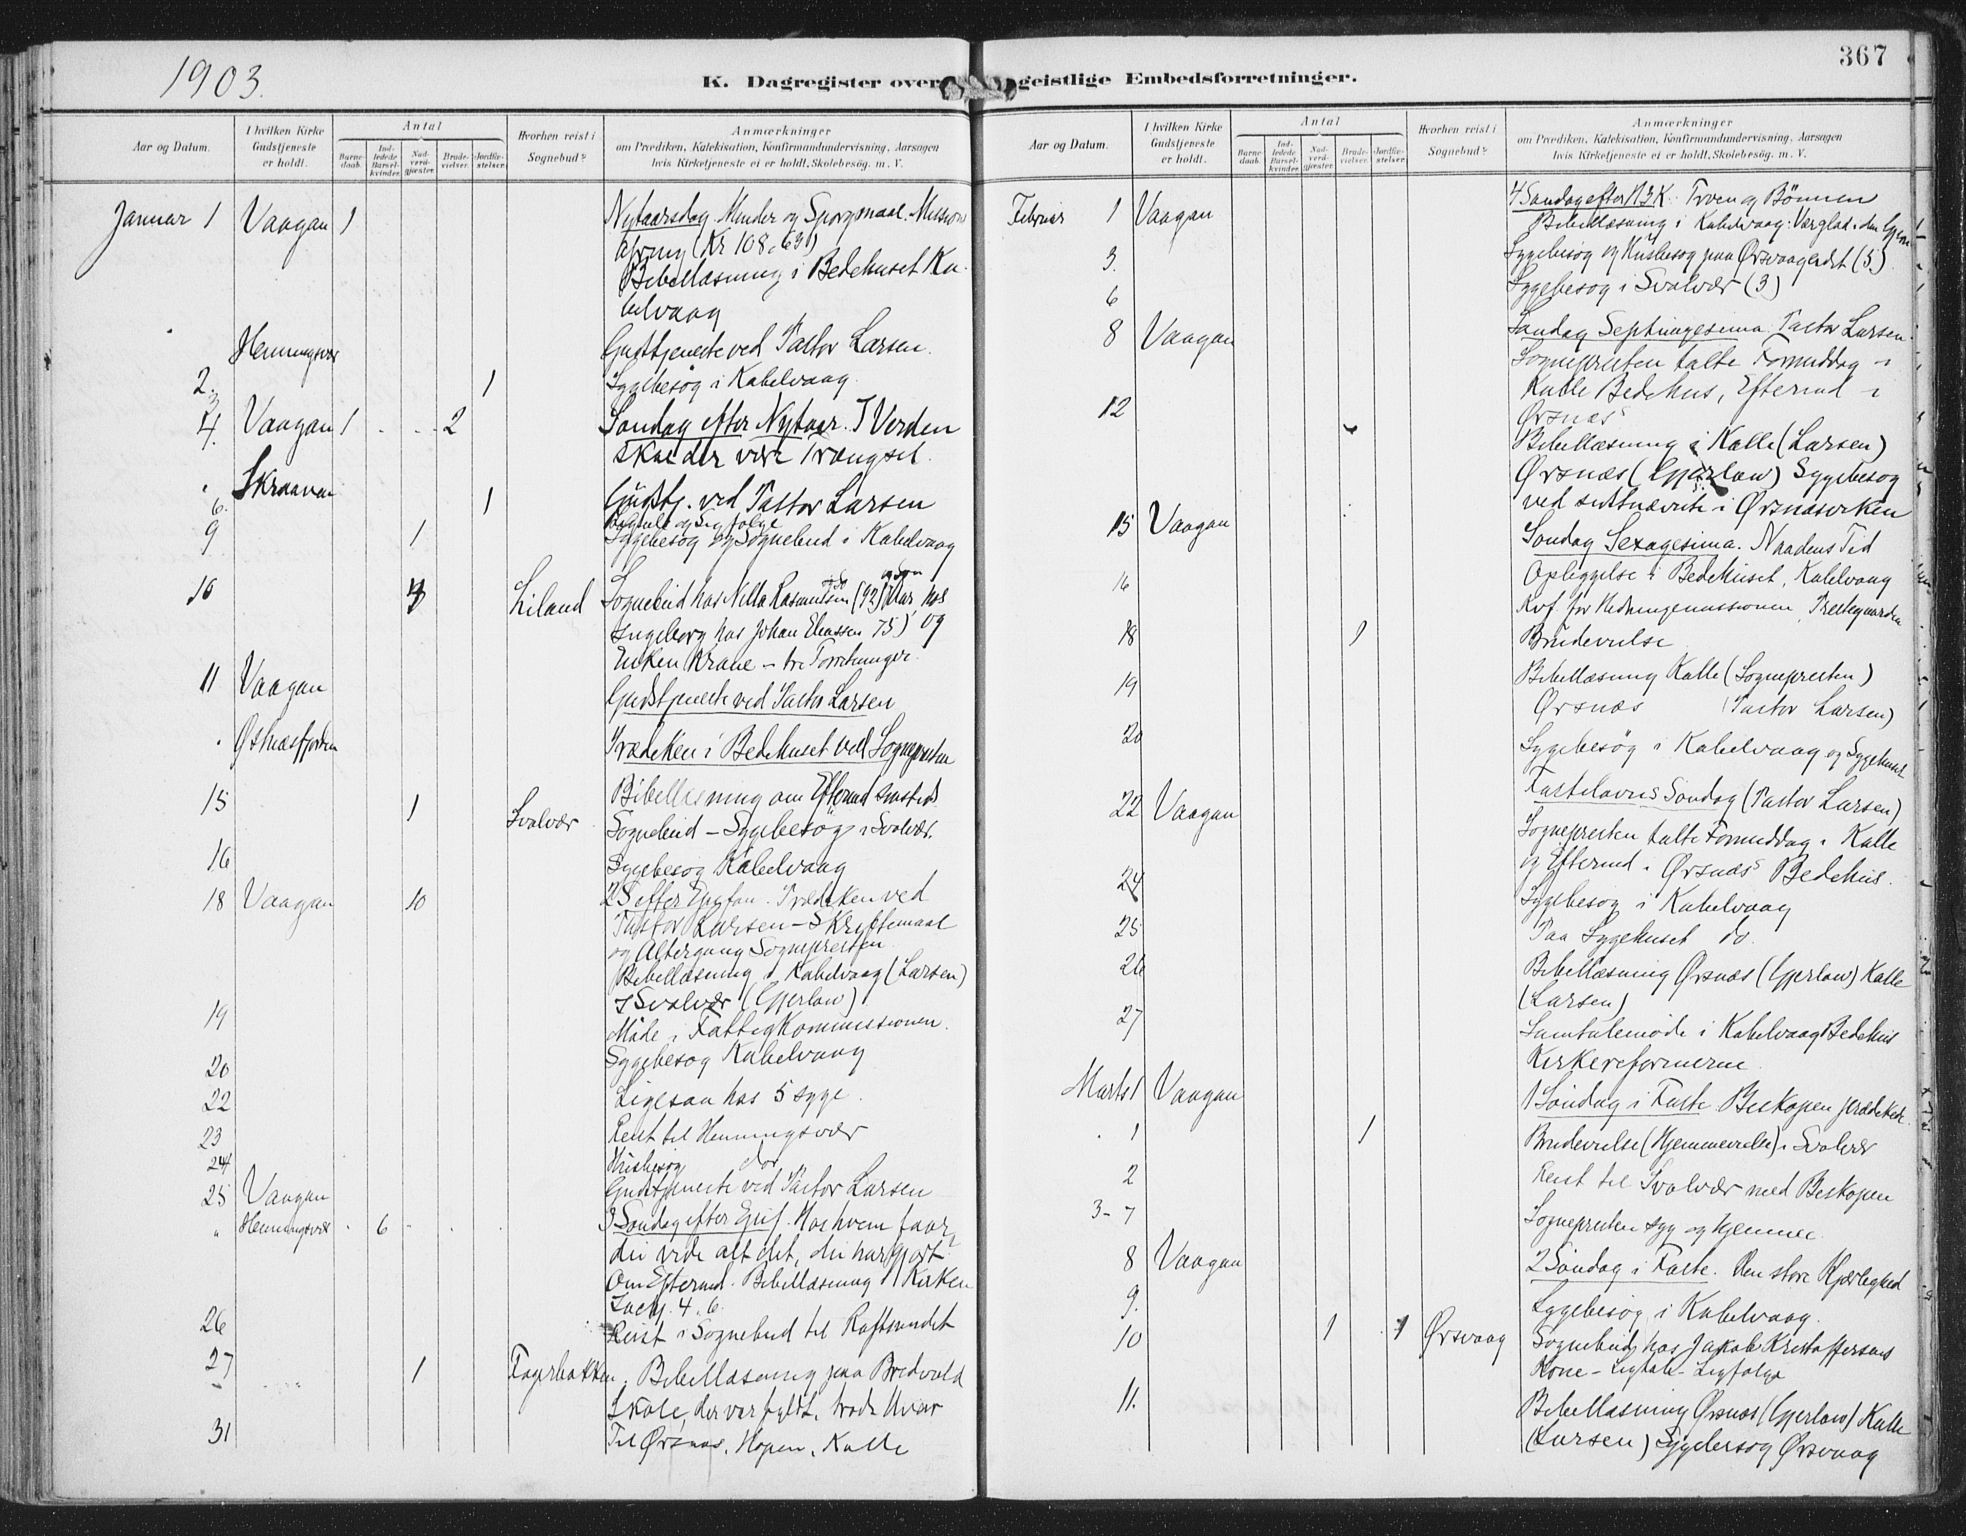 1903.
K. Dagregister over geistlige Embedsforretninger.
367
Aar og Datum.
I hvilken Kirke Gudstjeneste er holdt.
Antal
Barnedaab.
Indledede Barselkvinder.
Nadverdgjæster.
Brudevielser.
Jordfæstelser.
Hvorhen reist i Sognebud?
Anmærkninger
om Prædiken, Katekisation, Konfirmandundervisning, Aarsagen
hvis Kirketjeneste ei er holdt, Skolebesøg. m. V.
Januar 1 Vaagan 1 Nytaarsdag. Minder og Spørgsmaal. Missions
(Kr 108,63)
Bibellæsning i Bedehuset Ka
belvaag
Henningsvær Gudstjeneste ved Pastor Larsen.
2. 1 Sygebesøg i Kabelvaag.
4. Vaagan 1 2 Søndag efter Nytaar. I Verden
skal der være Trængsel.
Skraaven Gudstj. ved Pastor Larsen
6. 1 Ligtale og Ligfølge
9 1 Sygebesøg og Sognebud i Kabelvaag
10 Liland Sognebud hos Nille Rasmussen (92) Aar, hos
Ingeborg hos Johan Eliassen 75) og
Enken Krane
11 Vaagan Gudstjeneste ved Pastor Larsen
Østnæsfjorden Prædiken i Bedehuset ved Sognepresten
Bibellæsning om Eftermd
15 1 Svolvær Sognebud – Sygebesøg i Svolvær.
16 Sygebesøg Kabelvaag
18 Vaagan 10 2 S efter Epifan. Prædiken ved
Pastor Larsen – Skriftemaal
og Altergang Sognepresten.
Bibellæsning i Kabelvaag (Larsen)
I Svolvær (Gjerløw)
19 Møde i Fattigkommissionen.
20 Sygebesøg Kabelvaag
22 Ligesaa hos 5 syge.
23 Reist til Henningsvær
24 Husbesøg do
25 Vaagan Gudstjeneste ved Pastor Larsen
" Henningsvær 6 3 Søndag efter Epif.
der vide alt det, der har gjort
Om Eftermd. Bibellæsning i Kirken
Zach. 4.6.
26 Reist i Sognebud til Raftsundet
27 1 Fagerbakken. Bibellæsning paa Bredvold
Skole, der var fyldt,
31 Til Ørsnæs, Hopen, Kalle
Aar og Datum.
I hvilken Kirke Gudstjeneste er holdt.
Antal
Barnedaab.
Indledede Barselkvinder.
Nadverdgjæster.
Brudevielser.
Jordfæstelser.
Hvorhen reist i Sognebud?
Anmærkninger
om Prædiken, Katekisation, Konfirmandundervisning, Aarsagen
hvis Kirketjeneste ei er holdt, Skolebesøg. m. V.
Februar 1 Vaagan 4 Søndag efter H3K. Troen og Bønnen
Bibellæsning i Kabelvaag.
3. Sygebesøg og Husbesøg paa Ørsvaageidet (5)
6 Sygebesøg i Svolvær (3)
8 Vaagan Søndag Septuagesima. Pastor Larsen.
Sognepresten talte Formiddag i
Kalle Bedehus, Eftermd i
Ørsnæs
12 Bibellæsning i Kalle (Larsen)
Ørsnæs (Gjerløw) Sygebesøg
i Ørsnæsviken
15 Vaagan Søndag Sexagesima. Naadens Tid
Opbyggelse i Bedehuset, Kabelvaag
16 Kvf. for Hedningemissionen, Prestegaarden
18 1 Brudevielse
19 Bibellæsning Kalle (Sognepresten)
Ørsnæs (Pastor Larsen)
20 Sygebesøg i Kabelvaag og Sygehuset
22 Vaagan Fastelavns Søndag (Pastor Larsen)
Sognepresten talte Formiddag i Kalle
og Eftermd. i Ørsnæs Bedehus.
24 Sygebesøg i Kabelvaag
25 Paa Sygehuset do.
26 Bibellæsning Ørsnæs (Gjerløw) Kalle
(Larsen)
27 Samtalemøde i Kabelvaag Bedehus
Kirkereformerne.
Marts 1 Vaagan 1 Søndag i Faste Biskopen prædikede.
1 1 Brudevielse (Hjemmevielse) i Svolvær
2 Reist til Svolvær med Biskopen
3-7 Sognepresten syg og hjemme.
8 Vaagan 2 Søndag i Faste. Den store Kjærlighed
9. Sygebesøg i Kabelvaag.
10 1 1 Ørsvaag Sognebud hos Jakob Kristoffersens
Kone – Ligtale – Ligfølge
11. Bibellæsning Ørsnæs (Gjerløw) Kalle
(Larsen) Sygebesøg Ørsvaag